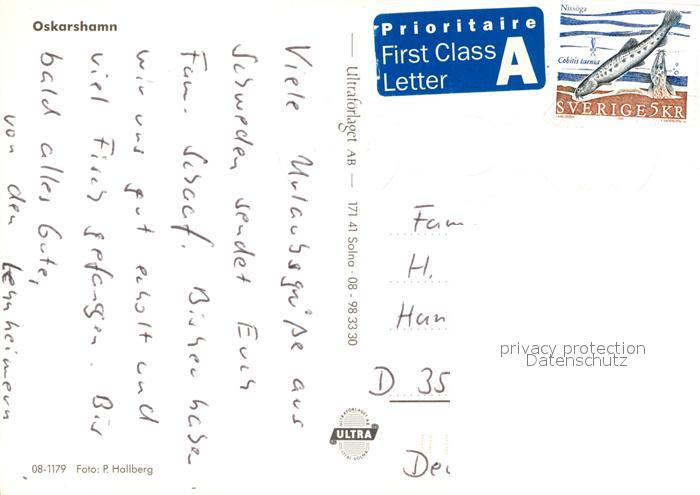 Oskarshamn
Viele Urlaubsgrüße aus
Schweden sendet Euch
Fam. Schaaf. Bisher haben
wir uns gut erholt und
viel Fisch gefangen. Bis
bald alles Gute,
von den Lennheimern
08-1179 Foto: P. Hallberg
Ultraförlaget AB — 171 41 Solna · 08 - 98 33 30
ULTRAFÖRLAGET AB
ULTRA
SOLNA
Prioritaire
First Class
Letter
A
Nissöga
Cobitis taenia
SVERIGE 5KR
Fam
H.
Han
D 35
privacy protection
Datenschutz